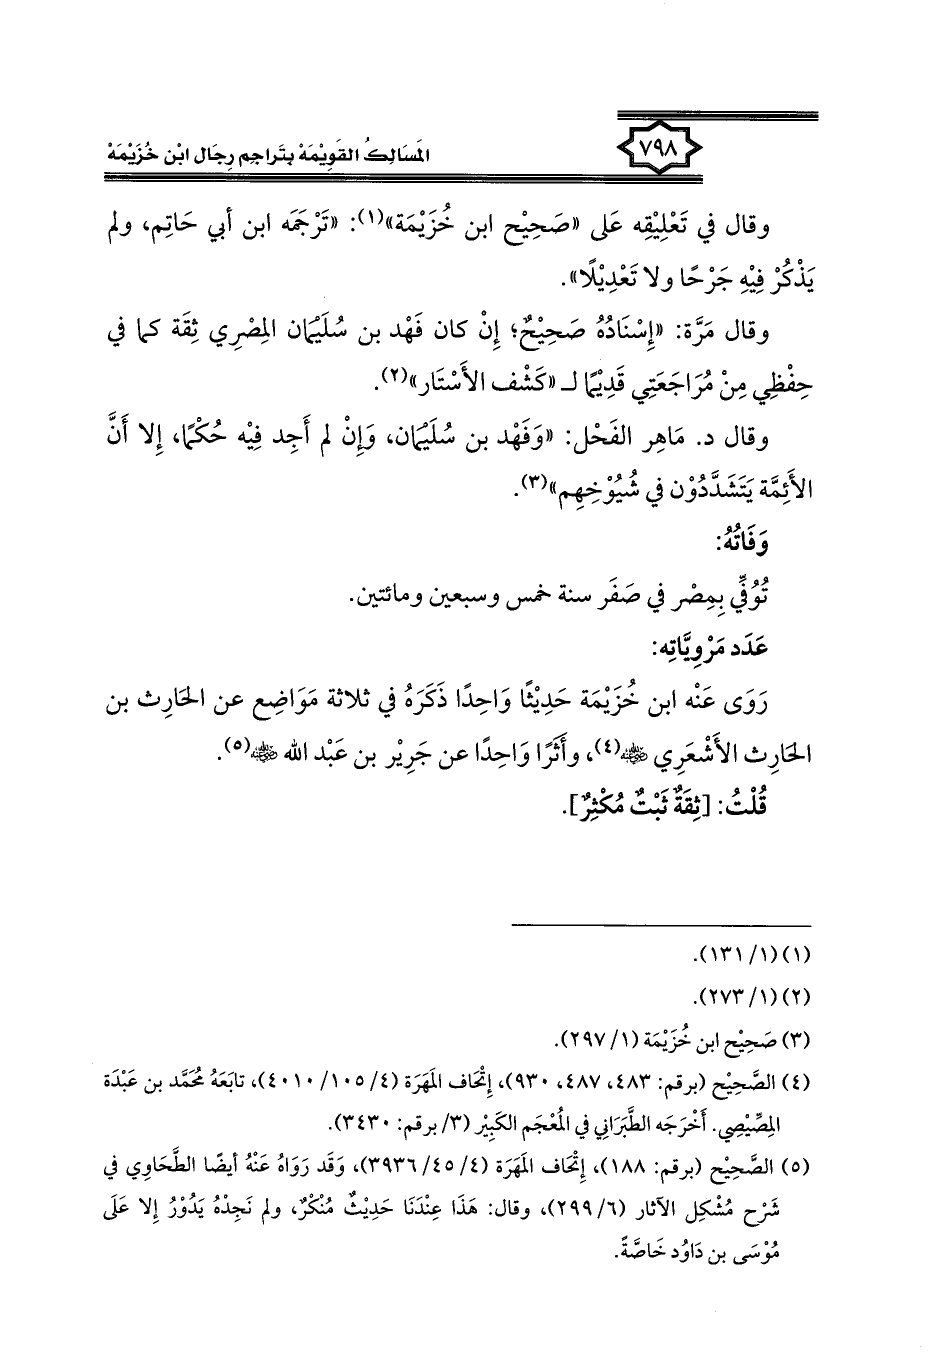 المَسَالِكُ القَوِيْمَةْ بتَراجم رِجَال ابْن خُزَيْمَةْ
٧٩٨
وقال في تَعْلِيْقِه عَلى «صَحِيْح ابن خُزَيْمَة»(١): «تَرْجَمَه ابن أبي حَاتِم، ولم
يَذْكُرْ فِيْهِ جَرْحًا ولا تَعْدِيْلًا».
وقال مَرَّة: «إِسْنَادُهُ صَحِيْحٌ؛ إِنْ كان فَهْد بن سُلَيْمَان المِصْرِي ثِقَة كما في
حِفْظِي مِنْ مُرَاجَعَتِي قَدِيْمًا لـ «كَشْف الأَسْتَار»(٢).
وقال د. مَاهِر الفَحْل: «وَفَهْد بن سُلَيْمَان، وَإِنْ لم أَجِد فِيْه حُكْمًا، إلا أَنَّ
الأَئِمَّة يَتَشَدَّدُوْن في شُيُوْخِهِم»(٣).
وَفَاتُهُ:
تُوُفِّي بِمِصْر في صَفَر سنة خمس وسبعين ومائتين.
عَدَد مَرْوِيَّاتِه:
رَوَى عَنْه ابن خُزَيْمَة حَدِيْثًا وَاحِدًا ذَكَرَهُ في ثلاثة مَوَاضِع عن الحَارِث بن
الحَارِث الأَشْعَرِي ﵁(٤)، وأَثَرًا وَاحِدًا عن جَرِيْر بن عَبْد الله ﵁(٥).
قُلْتُ: [ثِقَةٌ ثَبْتٌ مُكْثِرٌ].
(١) (١/ ١٣١).
(٢) (١/ ٢٧٣).
(٣) صَحِيْح ابن خُزَيْمَة (١/ ٢٩٧).
(٤) الصَّحِيْح (برقم: ٤٨٣، ٤٨٧، ٩٣٠)، إِتْحَاف المَهَرَة (٤/ ١٠٥/ ٤٠١٠)، تابَعَهُ مُحَمَّد بن عَبْدَة
المِصِّيْصِي. أَخْرَجَه الطَّبَرَانِي في المُعْجَم الكَبِيْر (٣/ برقم: ٣٤٣٠).
(٥) الصَّحِيْح (برقم: ١٨٨)، إِتْحَاف المَهَرَة (٤/ ٤٥/ ٣٩٣٦)، وَقَد رَوَاهُ عَنْهُ أيضًا الطَّحَاوِي في
شَرْح مُشْكِل الآثار (٦/ ٢٩٩)، وقال: هَذَا عِنْدَنَا حَدِيْثٌ مُنْكَرٌ، ولم نَجِدْهُ يَدُوْرُ إلا عَلَى
مُوْسَى بن دَاوُد خَاصَّةً.